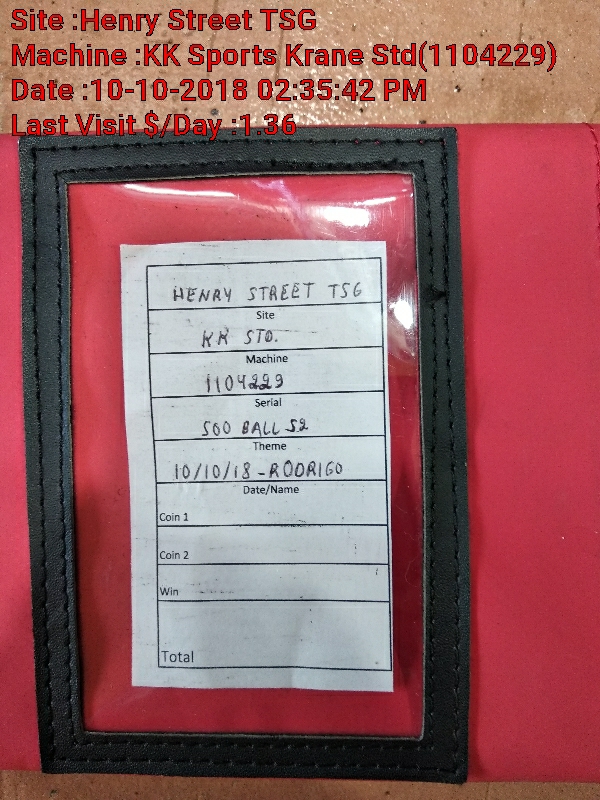 Site :Henry Street TSG
Machine :KK Sports Krane Std(1104229)
Date :10-10-2018 02:35:42 PM
Last Visit $/Day :1.36
HENRY STREET TSG
Site
KK STD.
Machine
1104229
Serial
500 BALL S2
Theme
10/10/18-RODRIGO
Date/Name
Coin 1
Coin 2
Win
Total